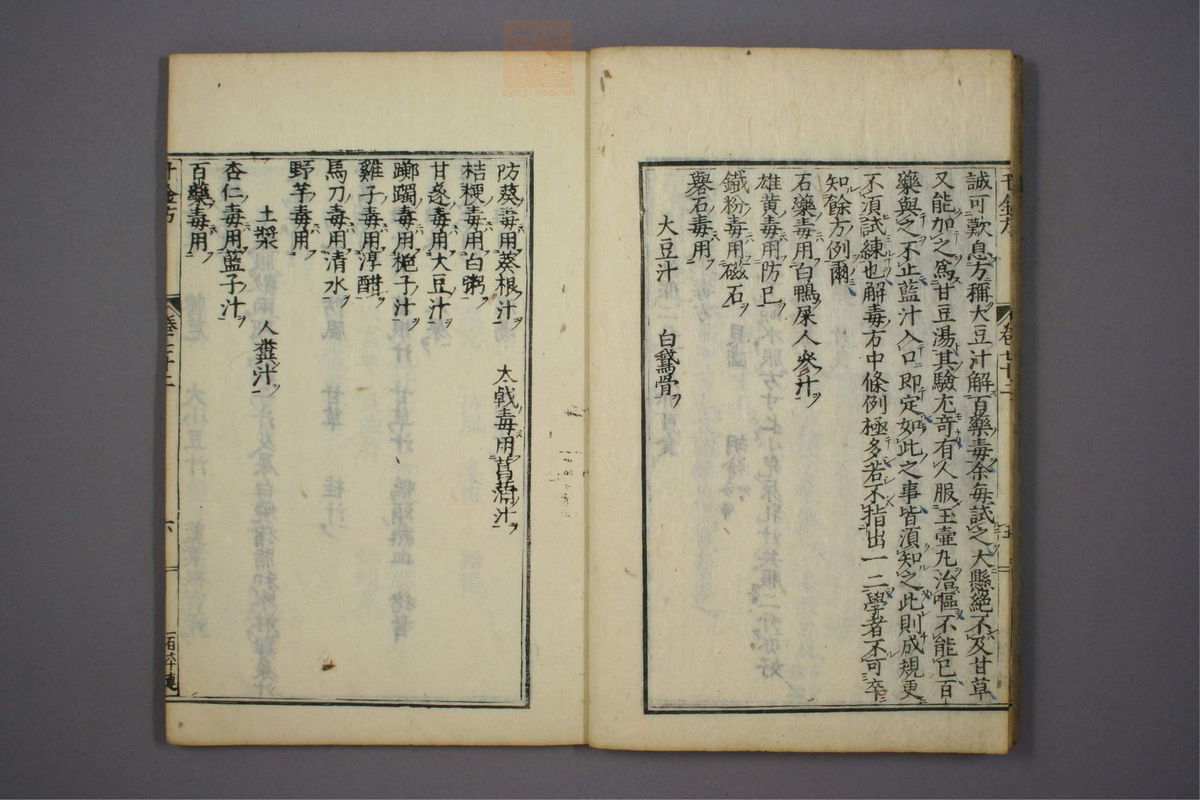 誠可歎息方稱大豆汁解百藥毒余每試之大懸絕不及甘草
又能加之爲甘豆湯其驗尤奇有人服玉壷丸治嘔不能已百
藥與之不止藍汁入口即定如此之事皆湏知之此則成規更
不湏試練也解毒方中條例極多若不指出一二學者不可卒
知餘方例爾
石藥毒用白鴨屎人參汁
雄黃毒用防已
鐵粉毒用磁石
礜石毒用
大豆汁　白鵞骨
防葵毒用葵根汁　大戟毒用菖蒲汁
桔梗毒用白粥
甘遂毒用大豆汁
躑躅毒用梔子汁
雞子毒用淳醋
馬刀毒用清水
野芋毒用
土漿　人糞汁
杏仁毒用藍子汁
百藥毒用
六